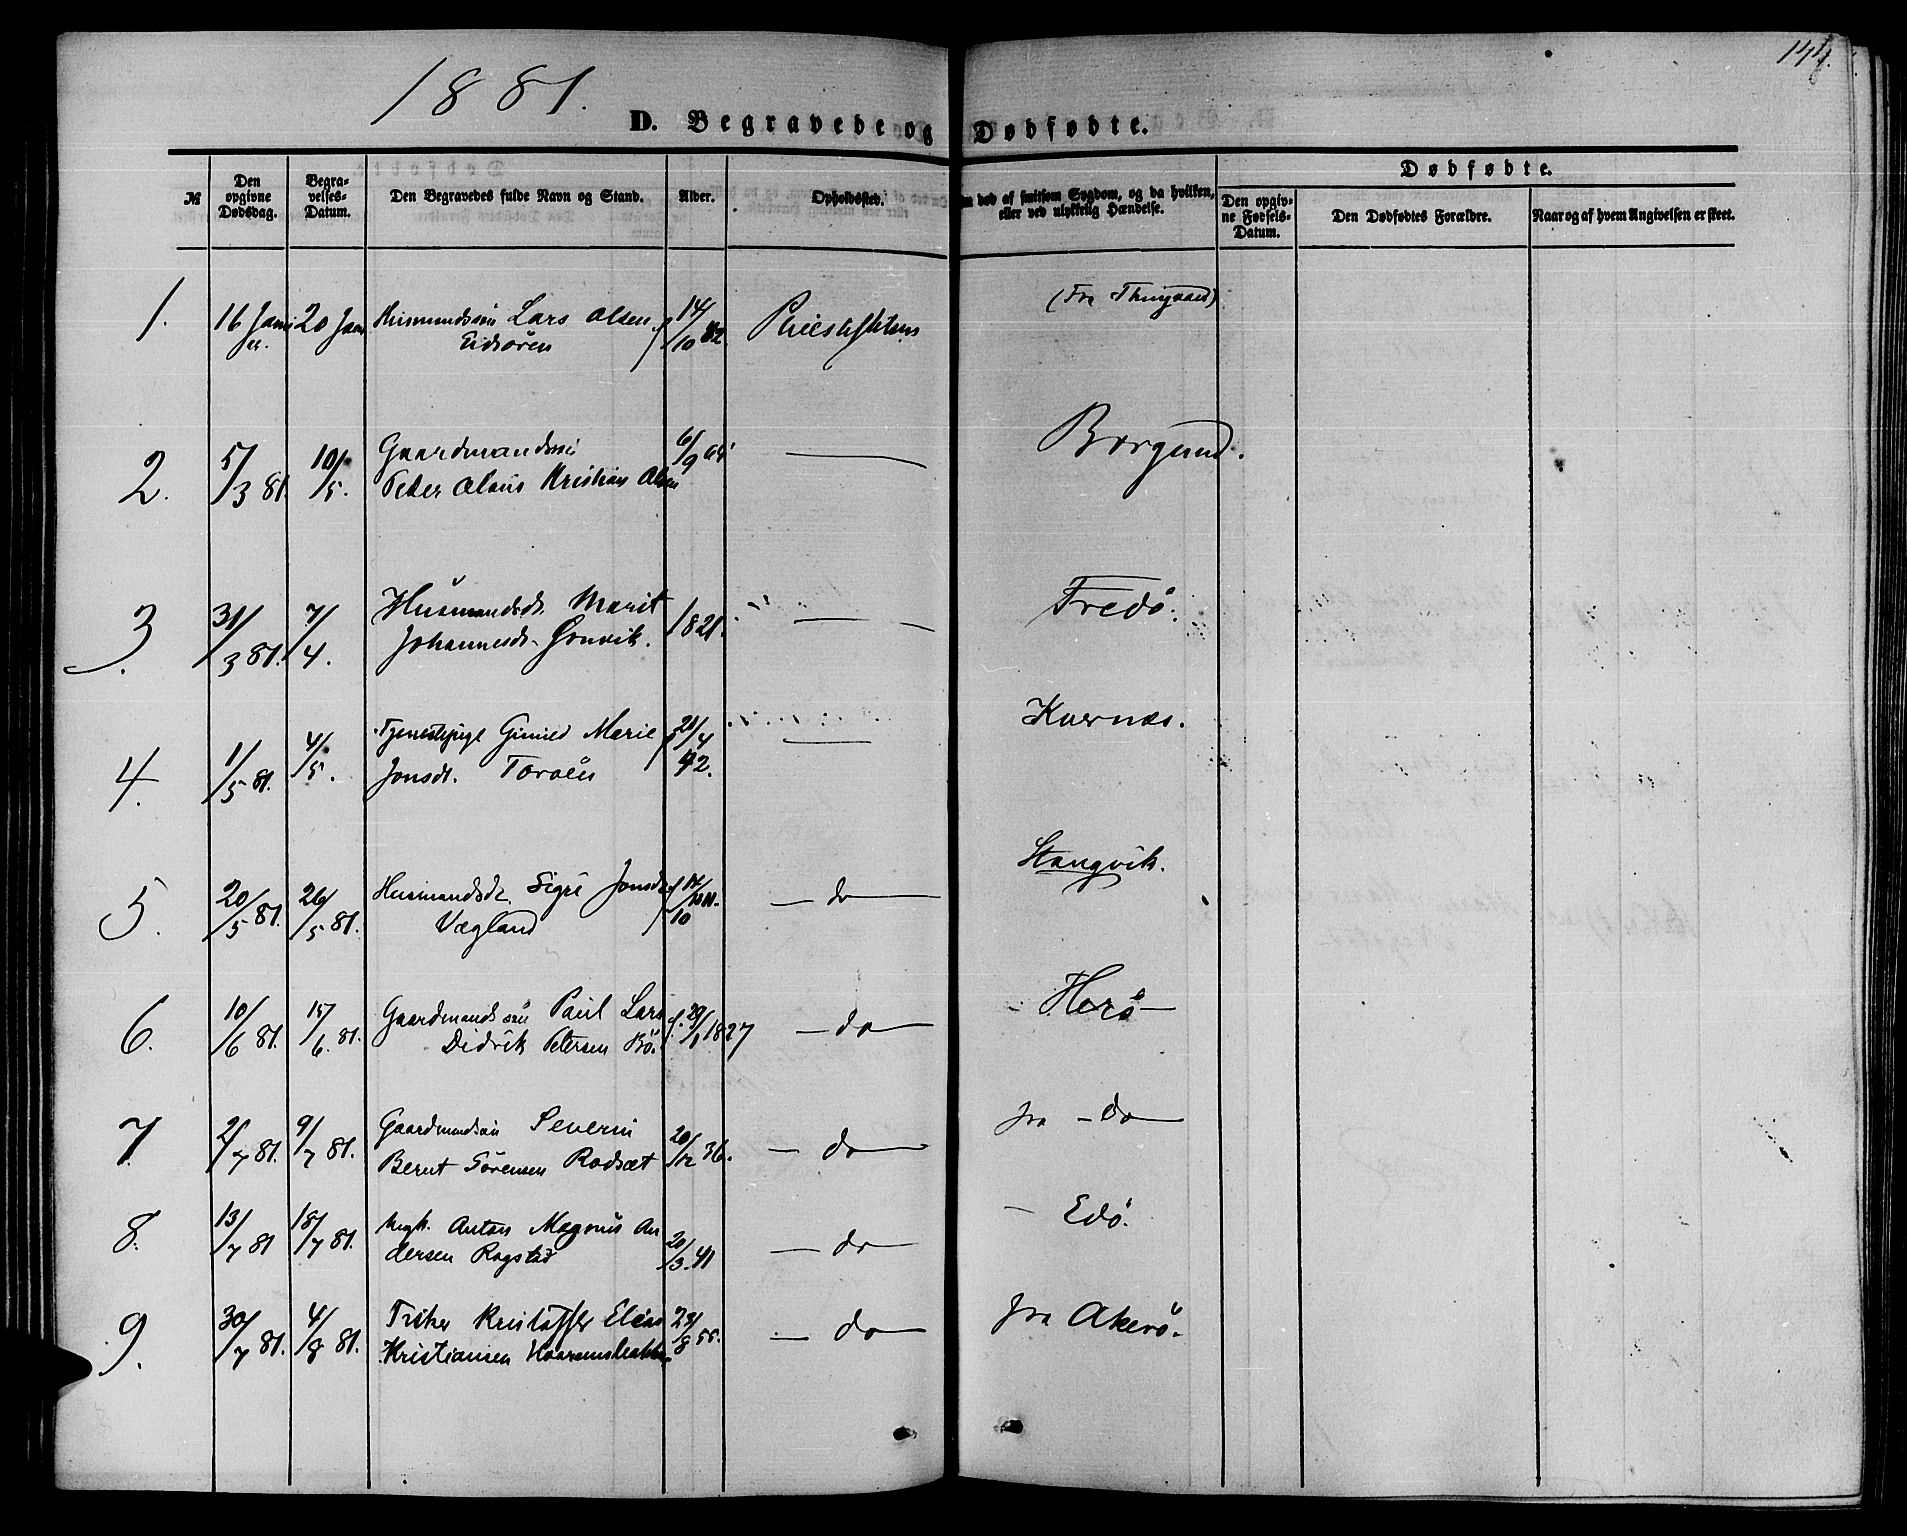 144.
1881.
D. Begravede og Dødfødte.
№
Den opgivne Dødsdag.
Begravelses-Datum.
Den Begravedes fulde Navn og Stand.
Alder.
Opholdssted.
død af smitsom Sygdom, og da hvilken, eller ved ulykkelig Hændelse.
Dødfødte.
Den opgivne Fødsels-Datum.
Den Dødfødtes Forældre.
Naar og af hvem Angivelsen er skeet.
1. 16 Janu 20 Jan Husmandssøn Lars Olsen 14/10 (Fra
Eidsøren
2. 5/3 81. 10/5. Gaardmandssøn 6/9 — Borgund.
Peder Olaus Kristian Olsen
3. 31/3 81. 7/4. Husmandsdt. Marit 1821. — Fredö.
Johannesdt.
4. 1/5 81. 4/5. Tjenestepige Marie 21/4 42. — Kvernæs.
Jonsdt. Torvén
5. 20/5 81. 26/5 81. Husmandsdt. Sigri Jonsdt — do — Stangvik.
Vægland
6. 10/6 81. 15/6 81. Gaardmandssøn Paul Lars f. 29/1 1827 — do — Herö —
Didrik Petersen Bö.
7. 2/7 81. 9/7 81. Gaardmandssøn Severin 20/12 36. — do — fra — do —
Bernt Sörensen Rodsæt
8. 13/7 81 18/7 81. Ungk. Anton Magnus An 20/3 41 — do — — Edö.
dersen Rogstad
9. 30/7 81. 4/8 81. Fisker Kristoffer Elias 23/8 55. — do — fra Akerö.
Kristiansen